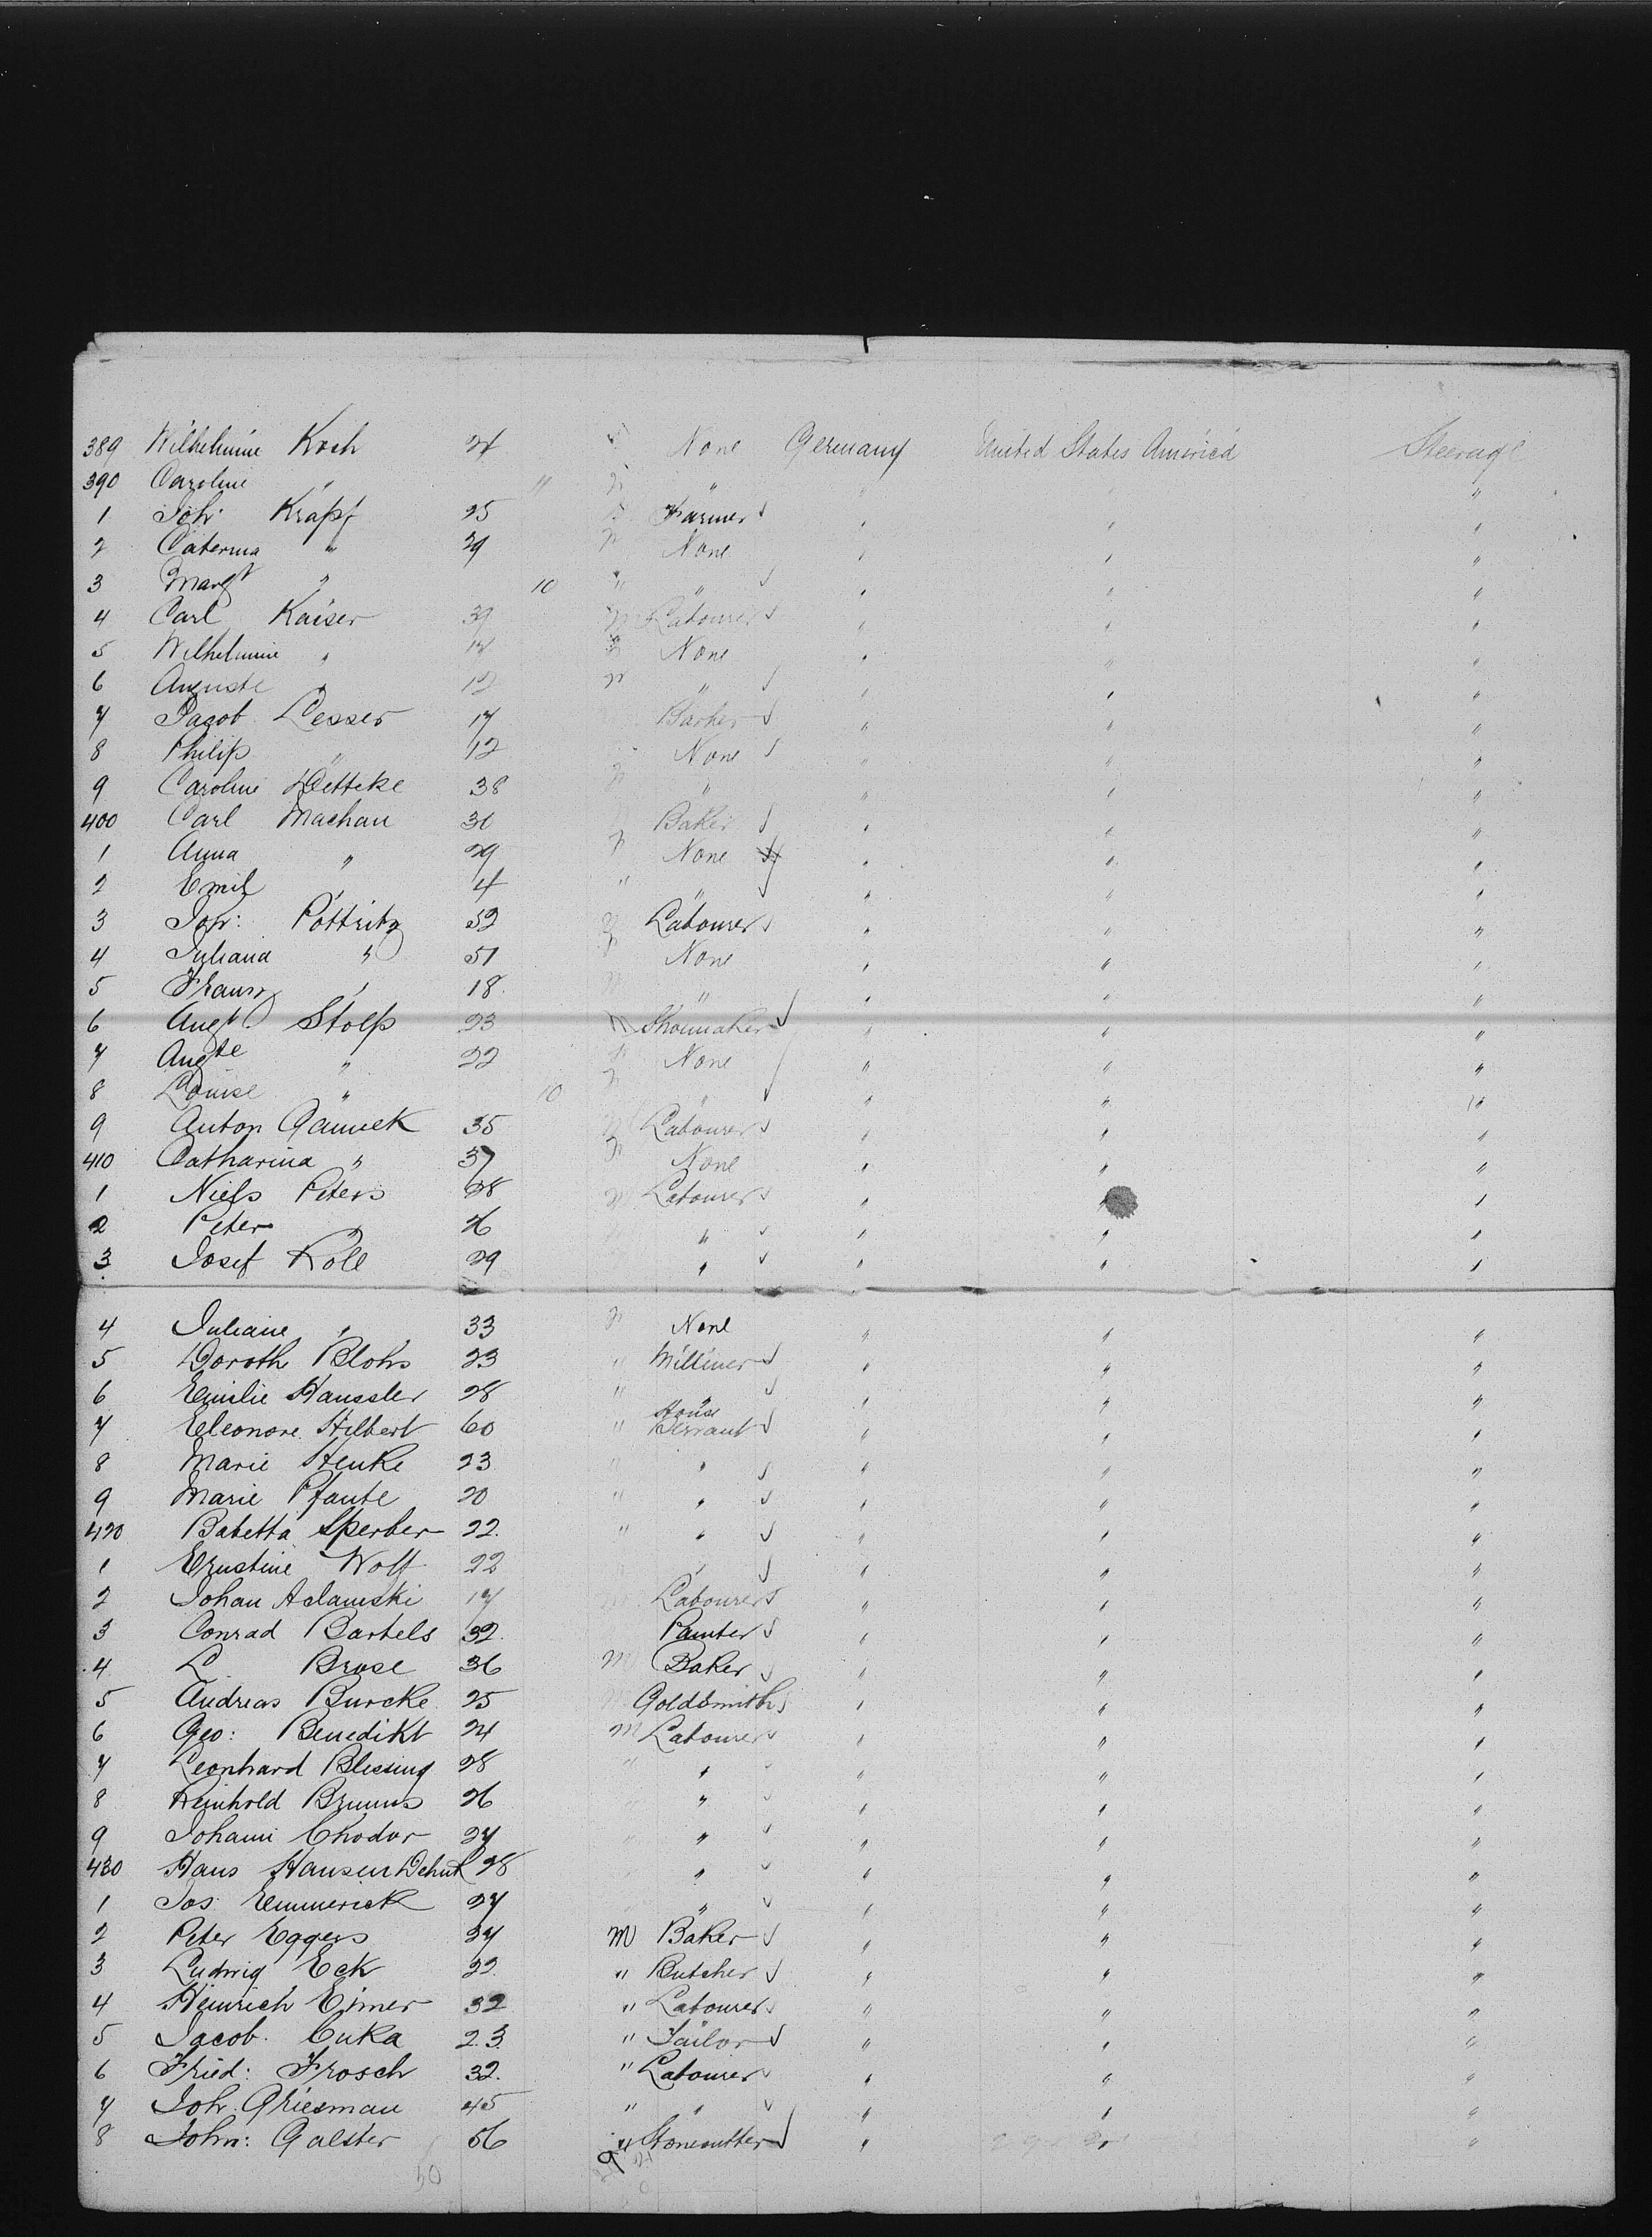 389 Wilhelmine Koch 24 None Germany United States America Steerage
390 Caroline " 11 " " " "
1 Joh: Krapf 25 Farmer " " "
2 Caterina " 29 None " " "
3 Margt " 10 " " " " "
4 Carl Kaiser 39 M Labourer " " "
5 Wilhelmine " None " " "
6 Auguste " 12 " " " "
7 Jacob Lesser 17 " " "
8 Philip " 12 None " " "
9 Caroline 38 " " " "
400 Carl Machau 31 Baker " " "
1 Anna " 29 None " " "
2 Emil " 4 " " " " "
3 Joh: Pottritz 52 Labourer " " "
4 Juliana " 51 None " " "
5 Franz " 18 " " " "
6 Augt. Stolp 23 M Shoemaker " " "
7 Augte " 22 None " " "
8 Louise " 10 " " " "
9 Anton 35 Labourer " " "
410 Catharina " 37 None " " "
1 Niels Peters 28 Labourer " " "
2 Peter " 26 " " " "
3 Josef Koll 29 " " " "
4 Juliane " 33 None " " "
5 Doroth Blohs 23 " Milliner " " "
6 Emilie Haussler 28 " " " " "
7 Eleonore Hilbert 60 " House Servant " " "
8 Marie Henke 23 " " " " "
9 Marie Pfante 20 " " " " "
420 Babetta Sperber 22. " " " " "
1 Ernstine Wolf 22 " " " "
2 Johan Adamski 17 Labourer " " "
3 Conrad Bartels 32. Painter " " "
4 L. Brose 36 M Baker " " "
5 Andreas Burcke 25 Goldsmith " " "
6 Geo: Benedikt 24 M Labourer " " "
7 Leonhard Blessing 28 " " " " "
8 Reinhold Brunns 26 " " " " "
9 Johann Chodor 27 " " " " "
430 Hans Hansen 28 " " " "
1 Jos: Emmerick 27 " " " "
2 Peter Eggers 34 M Baker " " "
3 Ludwig Eck 22. " Butcher " " "
4 Heinrich Eimer 32 " Labourer " " "
5 Jacob Cuka 23. " Tailor " " "
6 Fried: Frosch 32. " Labourer " " "
7 Joh. Griesman 45 " " " " "
8 John: Galster 56 " Stonecutter " " "
50